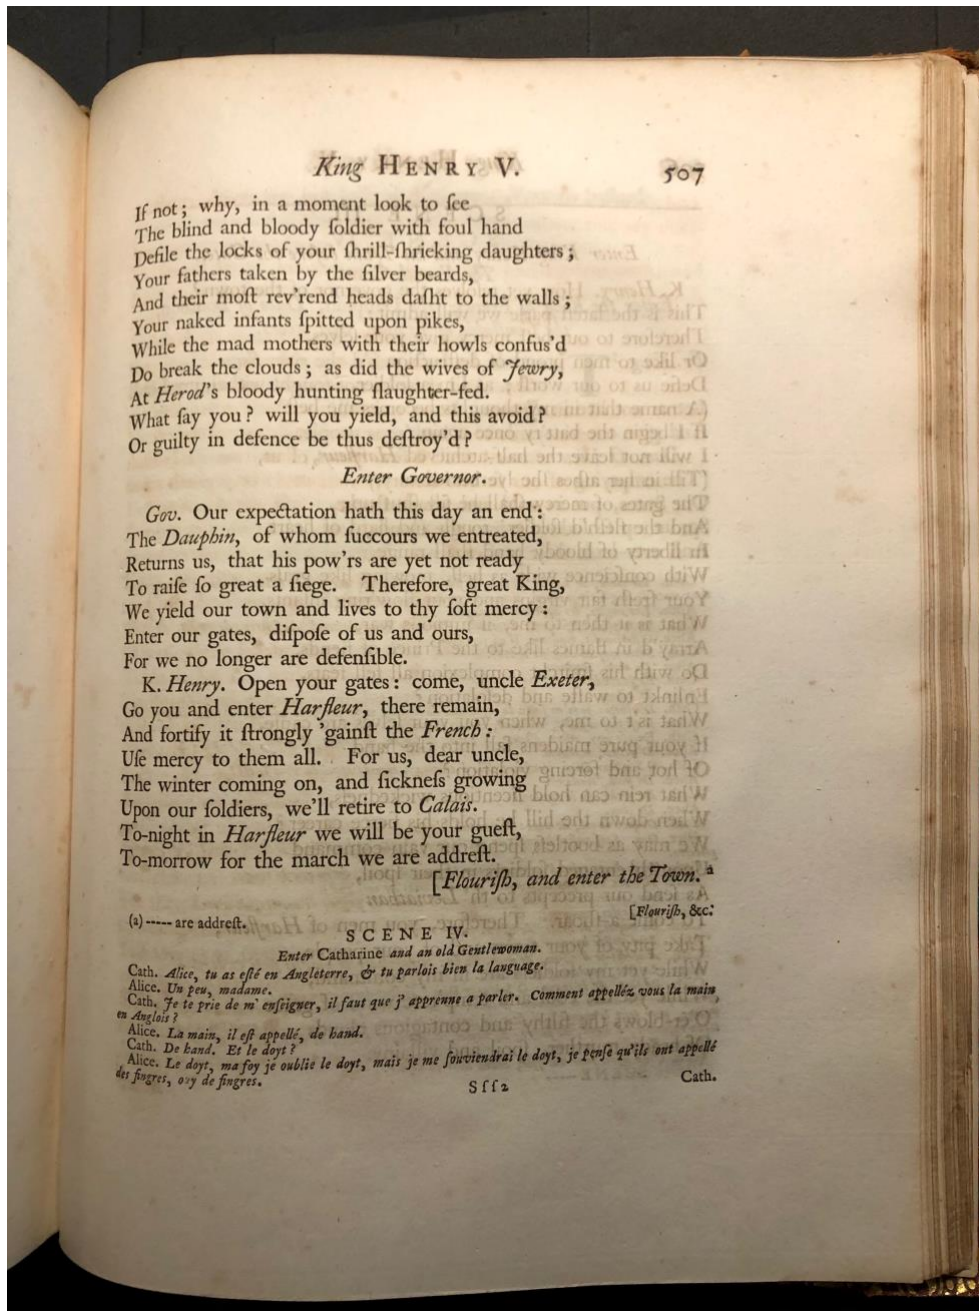 King HENRY V. 507
If not; why, in a moment look to ſee
The blind and bloody ſoldier with foul hand
Defile the locks of your ſhrill-ſhrieking daughters;
Your fathers taken by the ſilver beards,
And their moſt rev'rend heads daſht to the walls;
Your naked infants ſpitted upon pikes,
While the mad mothers with their howls confus'd
Do break the clouds; as did the wives of Jewry,
At Herod's bloody hunting ſlaughter-fed.
What ſay you? will you yield, and this avoid?
Or guilty in defence be thus deſtroy'd?
Enter Governor.
Gov. Our expectation hath this day an end:
The Dauphin, of whom ſuccours we entreated,
Returns us, that his pow'rs are yet not ready
To raiſe ſo great a ſiege. Therefore, great King,
We yield our town and lives to thy ſoft mercy:
Enter our gates, diſpoſe of us and ours,
For we no longer are defenſible.
K. Henry. Open your gates: come, uncle Exeter,
Go you and enter Harfleur, there remain,
And fortify it ſtrongly 'gainſt the French:
Uſe mercy to them all. For us, dear uncle,
The winter coming on, and ſickneſs growing
Upon our ſoldiers, we'll retire to Calais.
To-night in Harfleur we will be your gueſt,
To-morrow for the march we are addreſt.
[Flouriſh, and enter the Town. a
(a) ----- are addreſt. [Flouriſh, &c.
SCENE IV.
Enter Catharine and an old Gentlewoman.
Cath. Alice, tu as eſté en Angleterre, & tu parlois bien la language.
Alice. Un peu, madame.
Cath. Je te prie de m' enſeigner, il faut que j' apprenne a parler. Comment appelléz vous la main
en Anglois?
Alice. La main, il eſt appellé, de hand.
Cath. De hand. Et le doyt?
Alice. Le doyt, ma foy je oublie le doyt, mais je me ſouviendrai le doyt, je penſe qu'ils ont appellé
des fingres, ouy de fingres.
Sſſ2 Cath.